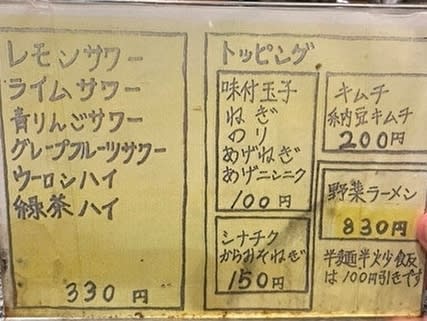 レモンサワー
ライムサワー
青りんごサワー
グレープフルーツサワー
ウーロンハイ
緑茶ハイ
330円
トッピング
味付玉子
ねぎ
のり
あげねぎ
あげニンニク
100円
シナチク
からみそねぎ
150円
キムチ
納豆キムチ
200円
野菜ラーメン
830円
半麺半炒飯
は100円引きです